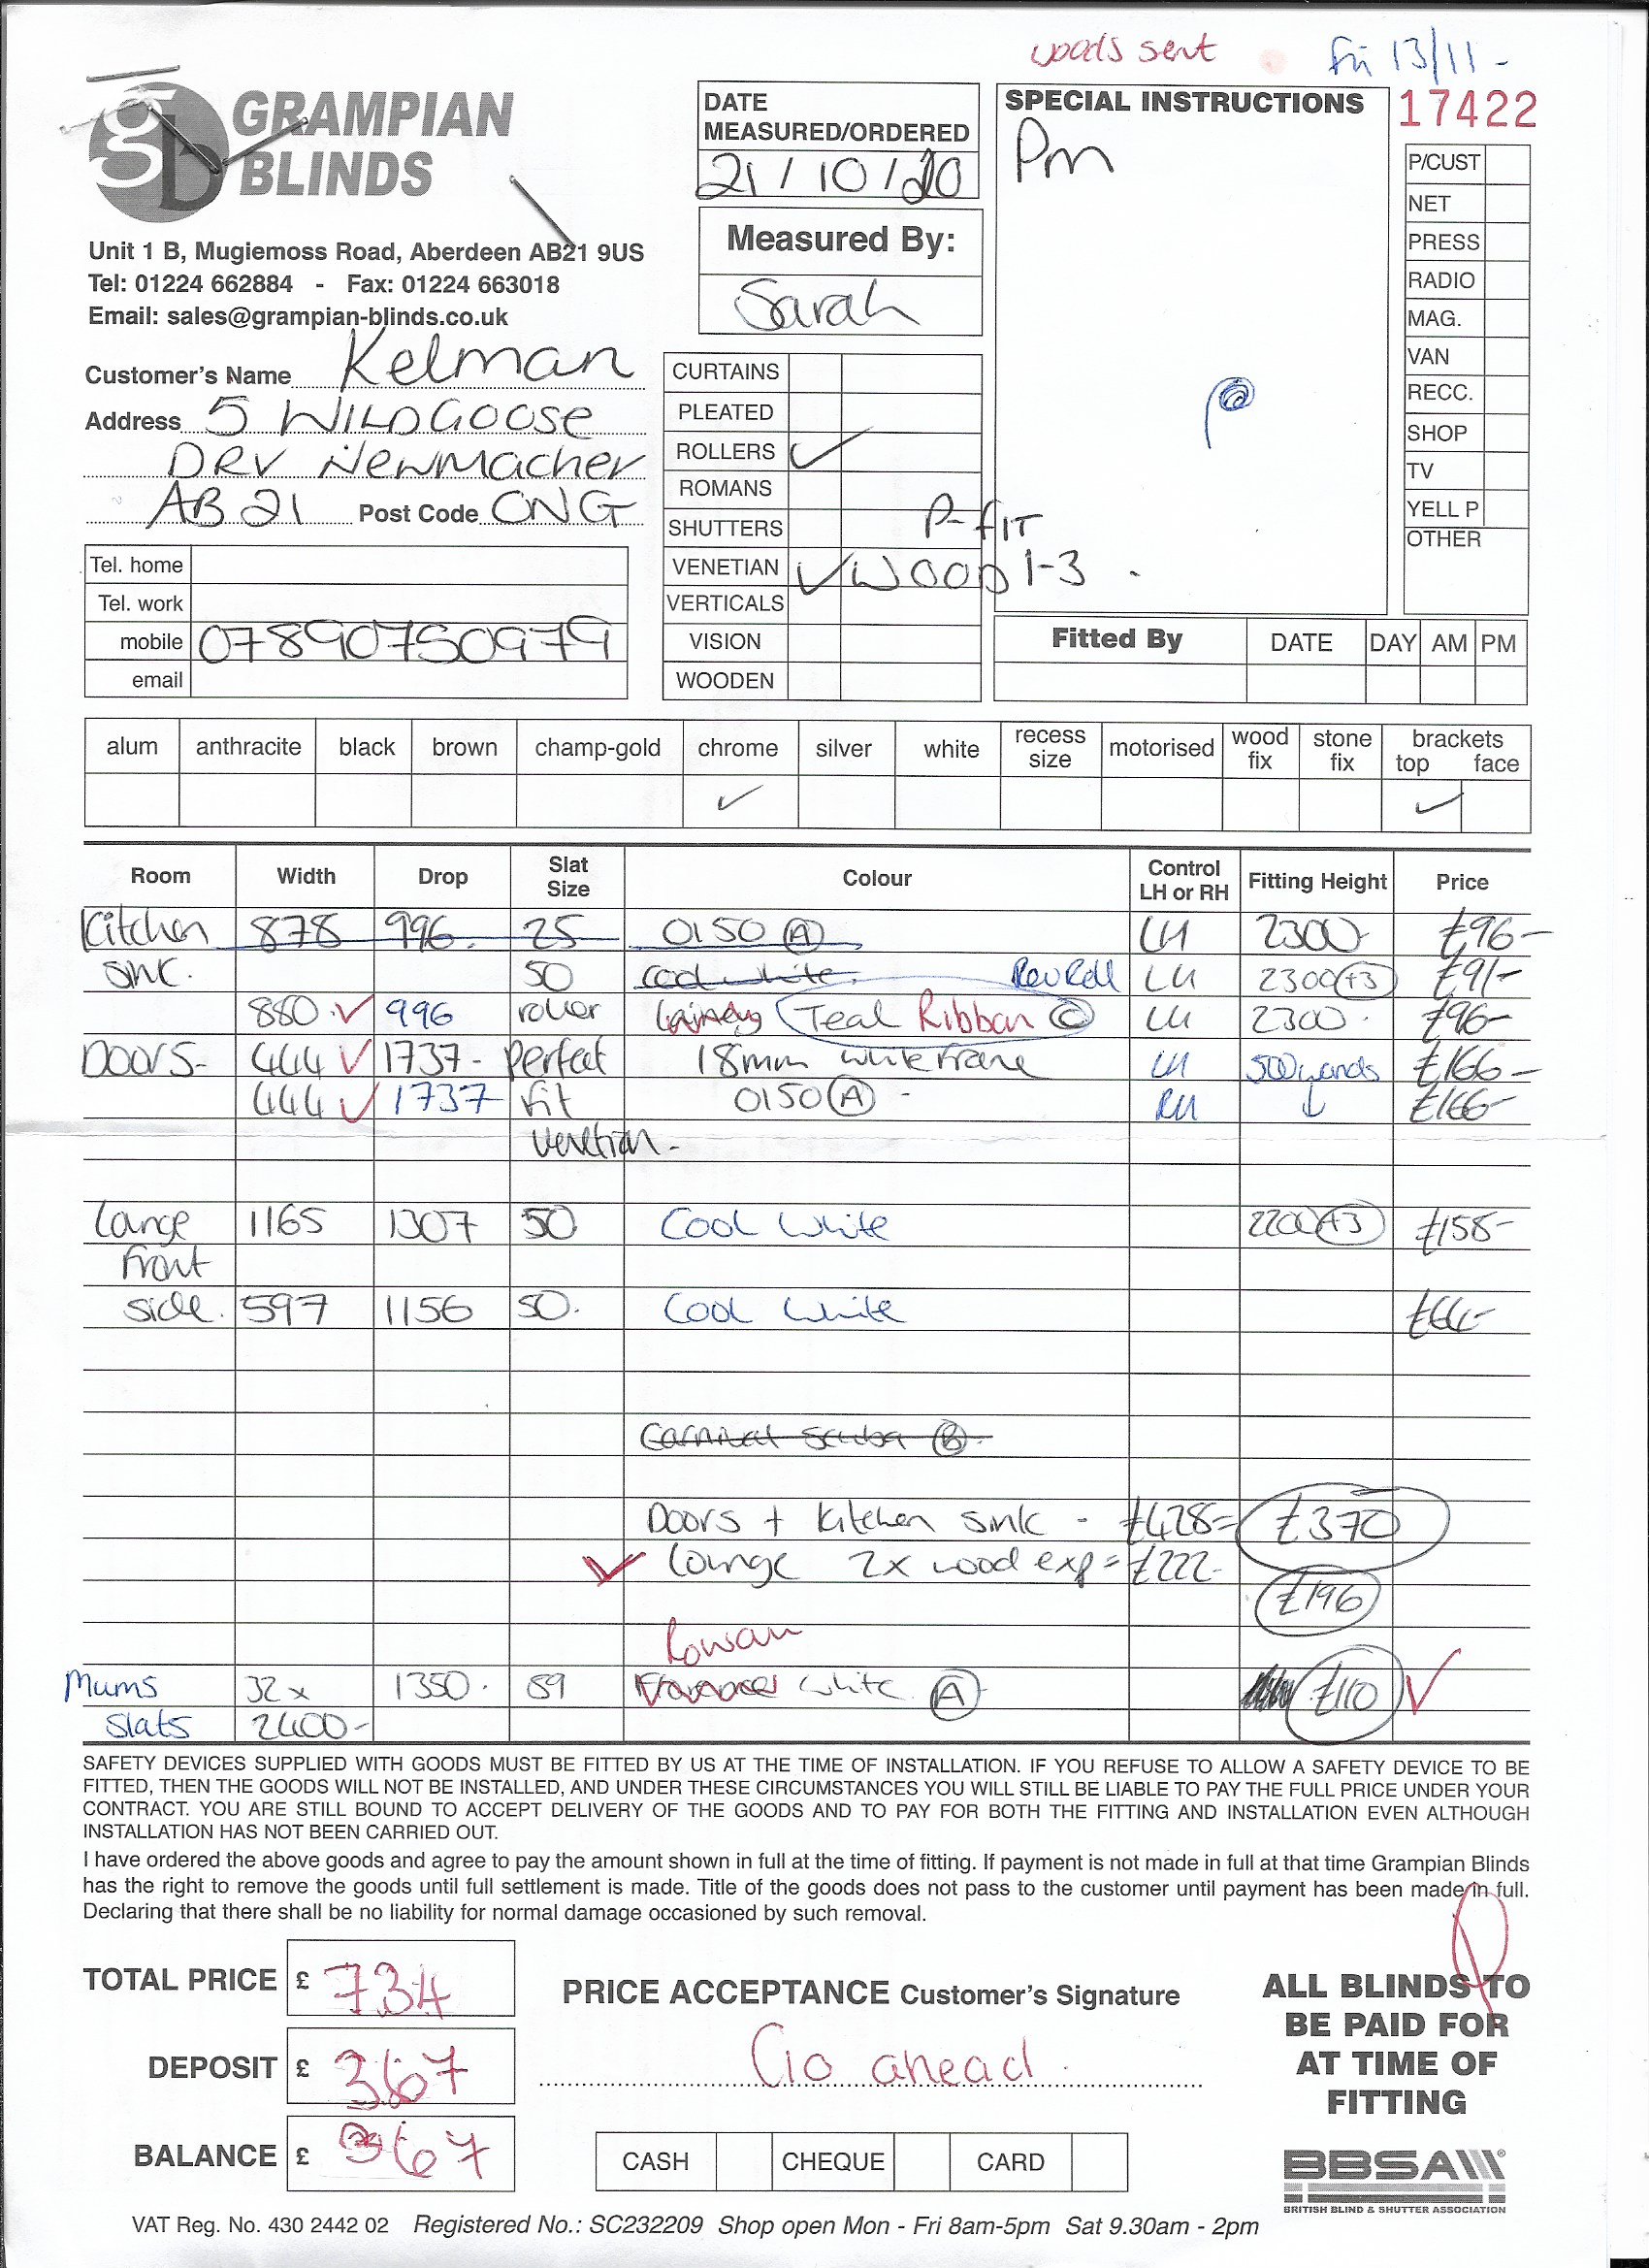 woods sent Fri 13/11 -
GRAMPIAN
BLINDS
Unit 1 B, Mugiemoss Road, Aberdeen AB21 9US
Tel: 01224 662884 - Fax: 01224 663018
Email: sales@grampian-blinds.co.uk
DATE
MEASURED/ORDERED
21/10/20
Measured By:
Sarah
SPECIAL INSTRUCTIONS
Pm
17422
P/CUST
NET
PRESS
RADIO
MAG.
VAN
RECC.
SHOP
TV
YELL P
OTHER
Customer's Name Kelman
Address 5 WILDGOOSE
DRV NewMacher
AB21 Post Code 0NG
Tel. home
Tel. work
mobile 07890750979
email
CURTAINS
PLEATED
ROLLERS ✓
ROMANS
SHUTTERS P-FIT
VENETIAN ✓ WOOD 1-3
VERTICALS
VISION
WOODEN
Fitted By DATE DAY AM PM
alum anthracite black brown champ-gold chrome silver white recess size motorised wood fix stone fix brackets top face
✓ ✓
Room Width Drop Slat Size Colour Control LH or RH Fitting Height Price
Kitchen 878 996. 25 0150 (A) LH 2300 £96-
sink. 50 cool white. Rev Roll LH 2300 (+3) £91-
880 ✓ 996 roller Teal Ribbon (C) LH 2300 £96-
Doors- 444 ✓ 1737- perfect 18mm white frame LH 500 wands £166-
444 ✓ 1737 fit 0150 (A) - RH ↓ £166-
venetian-
Lounge 1165 1307 50 Cool White 2200 (+3) £158-
front
side. 597 1156 50. Cool White £64-
Carnival Scuba (B)-
Doors + Kitchen sink - £428= £370
✓ Lounge 2x wood exp = £222-
£196
Rowan
Mums 32 x 1350. 89 white (A) £110 ✓
slats 2400-
SAFETY DEVICES SUPPLIED WITH GOODS MUST BE FITTED BY US AT THE TIME OF INSTALLATION. IF YOU REFUSE TO ALLOW A SAFETY DEVICE TO BE
FITTED, THEN THE GOODS WILL NOT BE INSTALLED, AND UNDER THESE CIRCUMSTANCES YOU WILL STILL BE LIABLE TO PAY THE FULL PRICE UNDER YOUR
CONTRACT. YOU ARE STILL BOUND TO ACCEPT DELIVERY OF THE GOODS AND TO PAY FOR BOTH THE FITTING AND INSTALLATION EVEN ALTHOUGH
INSTALLATION HAS NOT BEEN CARRIED OUT.
I have ordered the above goods and agree to pay the amount shown in full at the time of fitting. If payment is not made in full at that time Grampian Blinds
has the right to remove the goods until full settlement is made. Title of the goods does not pass to the customer until payment has been made in full.
Declaring that there shall be no liability for normal damage occasioned by such removal.
TOTAL PRICE £ 734
DEPOSIT £ 367
BALANCE £ 367
PRICE ACCEPTANCE Customer's Signature
Go ahead.
CASH CHEQUE CARD
ALL BLINDS TO
BE PAID FOR
AT TIME OF
FITTING
BBSA
BRITISH BLIND & SHUTTER ASSOCIATION
VAT Reg. No. 430 2442 02 Registered No.: SC232209 Shop open Mon - Fri 8am-5pm Sat 9.30am - 2pm